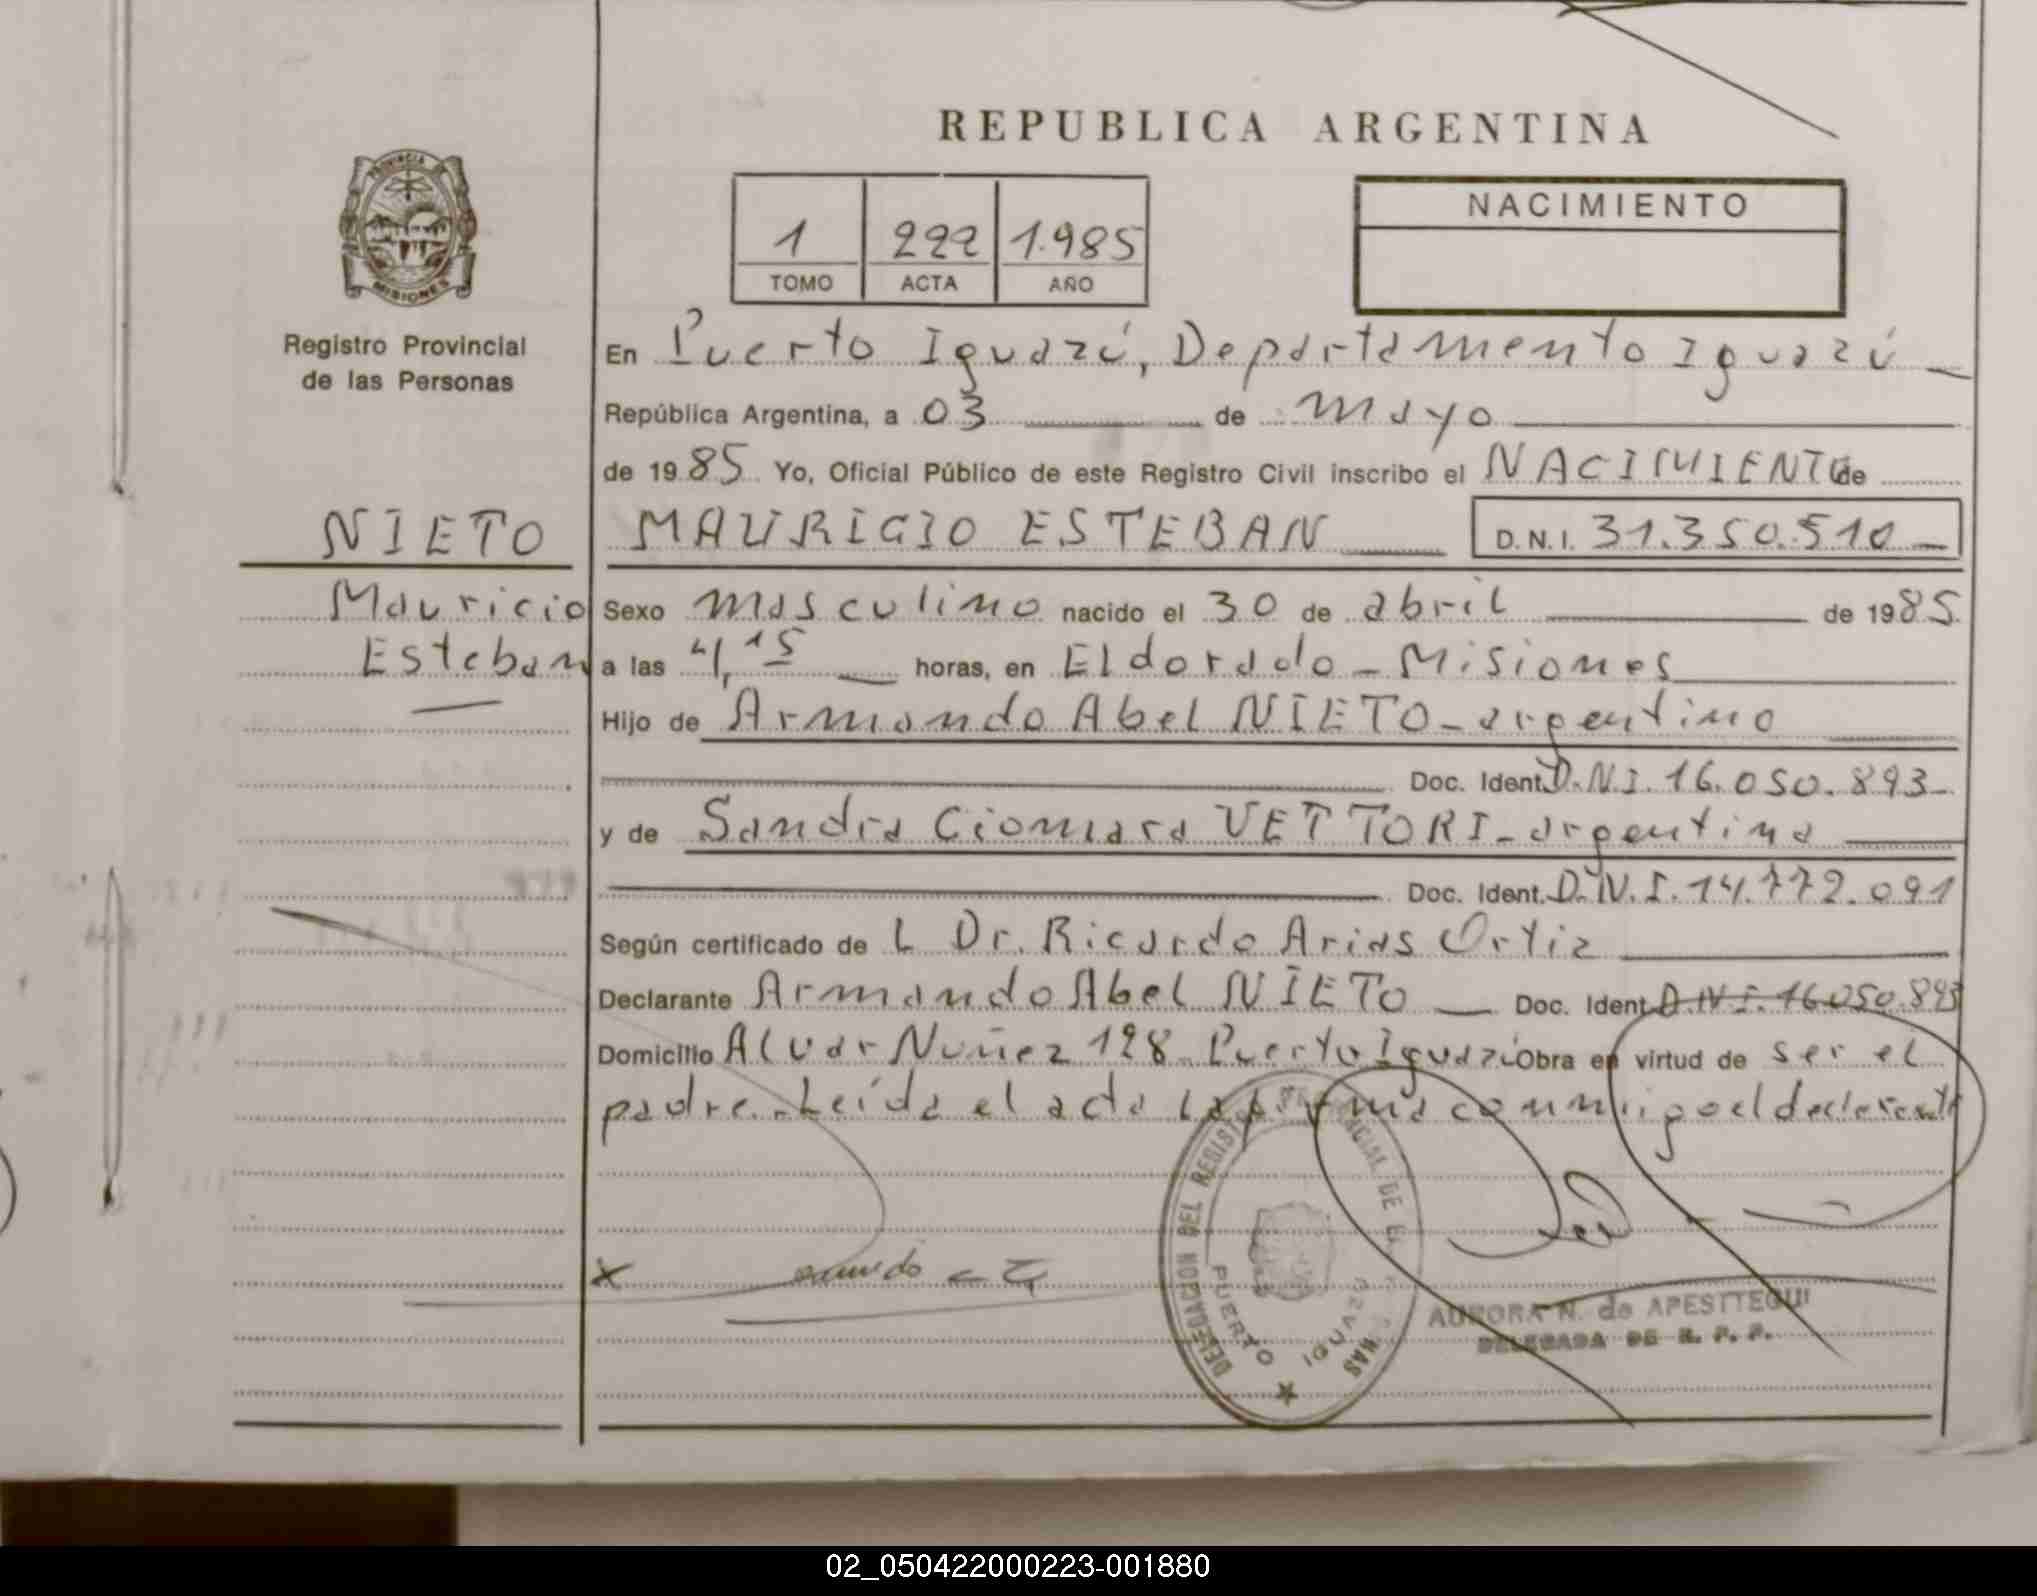 REPUBLICA ARGENTINA
PROVINCIA DE
MISIONES
Registro Provincial
de las Personas
1 222 1.985
TOMO ACTA AÑO
NACIMIENTO
En Puerto Iguazú, Departamento Iguazú
República Argentina, a 03 de mayo
de 1985 Yo, Oficial Público de este Registro Civil inscribo el NACIMIENTO de
NIETO MAURICIO ESTEBAN D.N.I. 31.350.510
Mauricio Sexo masculino nacido el 30 de abril de 1985
Esteban a las 4,15 horas, en Eldorado - Misiones
Hijo de Armando Abel NIETO - argentino
Doc. Ident. D.N.I. 16.050.893
y de Sandra Ciomara VETTORI - argentina
Doc. Ident. D.N.I. 14.772.091
Según certificado de L Dr. Ricardo Arias Ortiz
Declarante Armando Abel NIETO Doc. Ident. D.N.I. 16.050.893
Domicilio Alvar Nuñez 128 - Puerto Iguazú Obra en virtud de ser el
padre. Leída el acta la firma conmigo el declarante
DELEGACION DEL REGISTRO PROVINCIAL DE LAS PERSONAS
PUERTO IGUAZU
x
AURORA N. de APESTTEGUI
DELEGADA DE R. P. P.
02_050422000223-001880